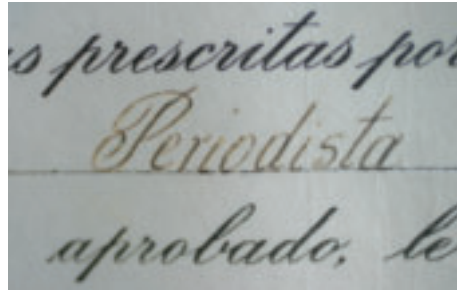 s prescritas por
Periodista
aprobado, le